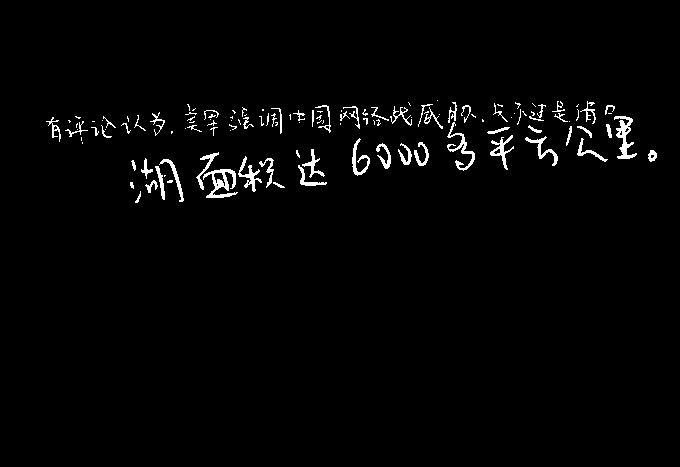 有评论认为,美军强调中国网络战威胁,只不过是借口
湖面积达6000多平方公里。